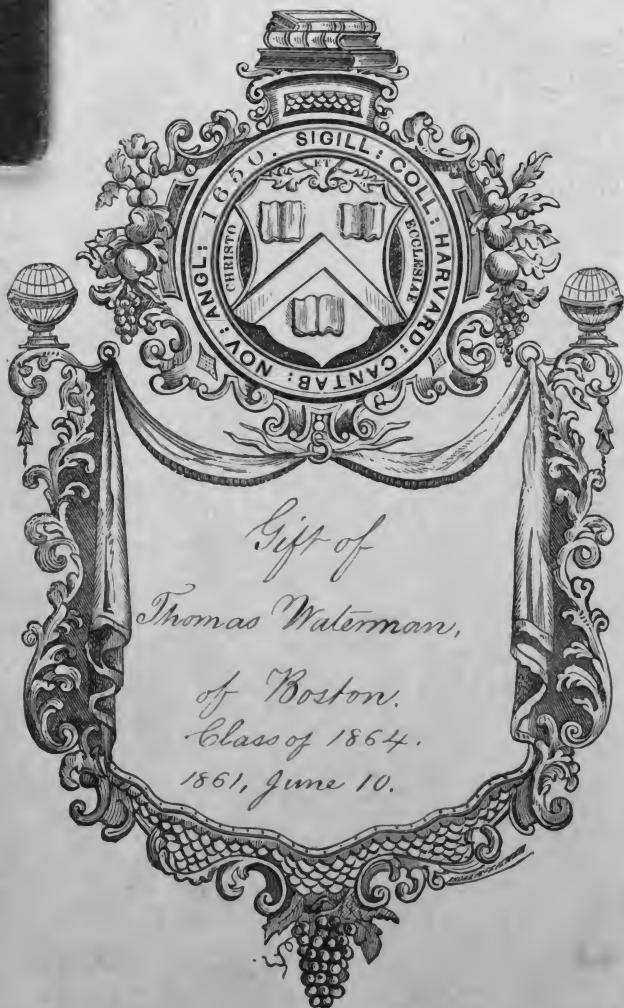 SIGILL: COLL: HARVARD: CANTAB: NOV: ANGL: 1650.
ET
CHRISTO
ECCLESIAE
Gift of
Thomas Waterman,
of Boston.
Class of 1864.
1861, June 10.